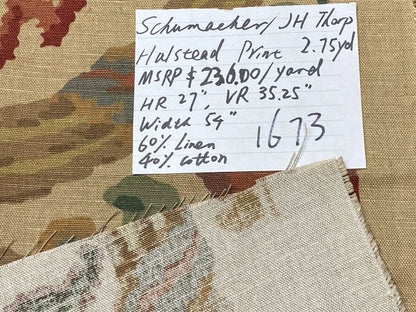 Schumacher/JH Thorp
Halstead Print 2.75yd
MSRP $230.00/yard
HR 27", VR 35.25"
Width 54"
60% Linen
40% cotton
1673